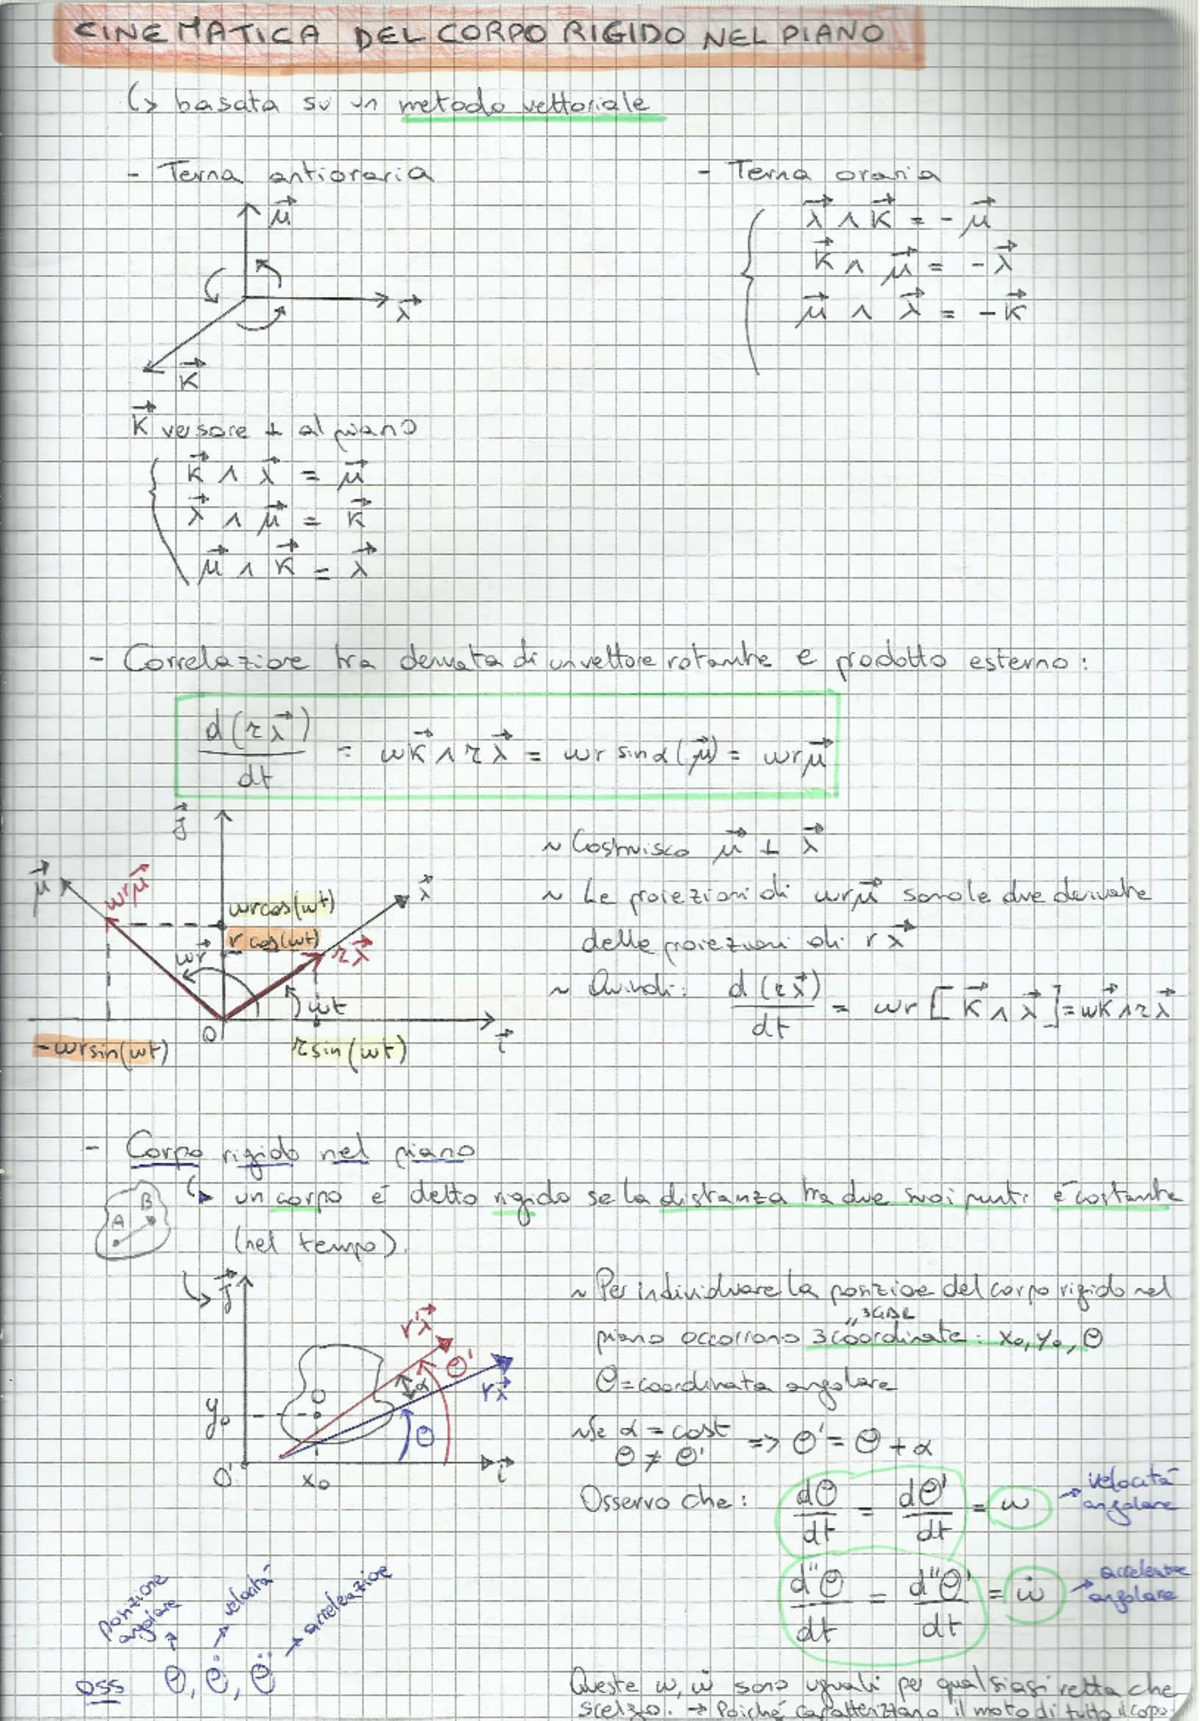 CINEMATICA DEL CORPO RIGIDO NEL PIANO
↳ basata su un metodo vettoriale
- Terna antioraria
μ⃗
λ⃗
K⃗
K⃗ versore ⊥ al piano
K⃗ ∧ λ⃗ = μ⃗
λ⃗ ∧ μ⃗ = K⃗
μ⃗ ∧ K⃗ = λ⃗
- Terna oraria
λ⃗ ∧ K⃗ = - μ⃗
K⃗ ∧ μ⃗ = - λ⃗
μ⃗ ∧ λ⃗ = - K⃗
- Correlazione tra derivata di un vettore rotante e prodotto esterno:
d(rλ⃗)/dt = ωK⃗ ∧ rλ⃗ = ωr sinα(μ⃗) = ωrμ⃗
j⃗
μ⃗
ωrμ⃗
λ⃗
ωrcos(ωt)
rcos(ωt)
rλ⃗
ωr
ωt
O
i⃗
-ωrsin(ωt)
rsin(ωt)
~ Costruisco μ⃗ ⊥ λ⃗
~ Le proiezioni di ωrμ⃗ sono le due derivate
delle proiezioni di rλ⃗
~ Quindi: d(rλ⃗)/dt = ωr [K⃗ ∧ λ⃗] = ωK⃗ ∧ rλ⃗
- Corpo rigido nel piano
↳ un corpo é detto rigido se la distanza tra due suoi punti é costante
A B
(nel tempo).
j⃗
r'λ⃗
θ'
rλ⃗
α
O
y₀
θ
O'
x₀
i⃗
~ Per individuare la posizione del corpo rigido nel
piano occorrono 3 coordinate: x₀, y₀, θ
θ = coordinata angolare
~ Se α = cost
θ ≠ θ' => θ' = θ + α
Osservo che: dθ/dt = dθ'/dt = ω → velocitá angolare
d''θ/dt = d''θ'/dt = ω̇ → angolare
posizione angolare
velocitá
accelerazione
oss θ, θ̇, θ̈
Queste ω, ω̇ sono uguali per qualsiasi retta che
scelgo. → Poiché caratterizzano il moto di tutto il corpo.